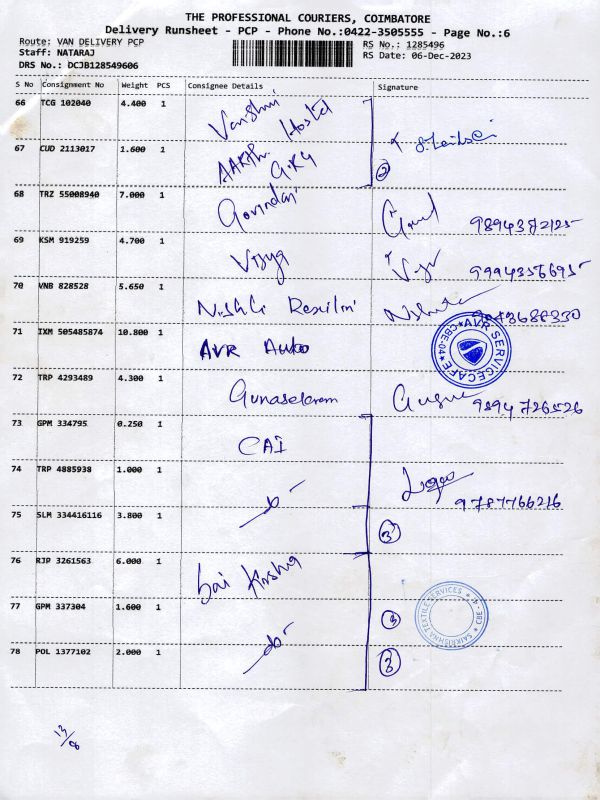 THE PROFESSIONAL COURIERS, COIMBATORE
Delivery Runsheet - PCP - Phone No.:0422-3505555 - Page No.:6
Route: VAN DELIVERY PCP
Staff: NATARAJ
DRS No.: DCJB128549606
RS No.: 1285496
RS Date: 06-Dec-2023
S No Consignment No Weight PCS Consignee Details Signature
66 TCG 102040 4.400 1
Hostel
67 CUD 2113017 1.600 1
2
68 TRZ 55008940 7.000 1 Govindan
69 KSM 919259 4.700 1 Vijya 9994356695
70 VNB 828528 5.650 1
71 IXM 505485874 10.800 1 AVR Auto
AVR SERVICECAFE
CBE-04
72 TRP 4293489 4.300 1 Gunaselaram 9894726526
73 GPM 334795 0.250 1 CAI
74 TRP 4885938 1.000 1 -do- 9787766216
75 SLM 334416116 3.800 1 3
76 RJP 3261563 6.000 1 Sai Krishna
77 GPM 337304 1.600 1 -do-
SAIKRISHNA TEXTILE SERVICES
CBE - 4
78 POL 1377102 2.000 1 3
13/8